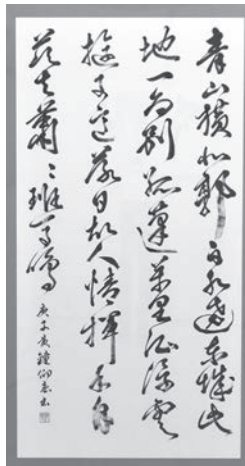 青山橫北郭白水遶東城此
地一為別孤蓬萬里征浮雲
遊子意落日故人情揮手自
茲去蕭〻班馬鳴
庚子歲鐘書